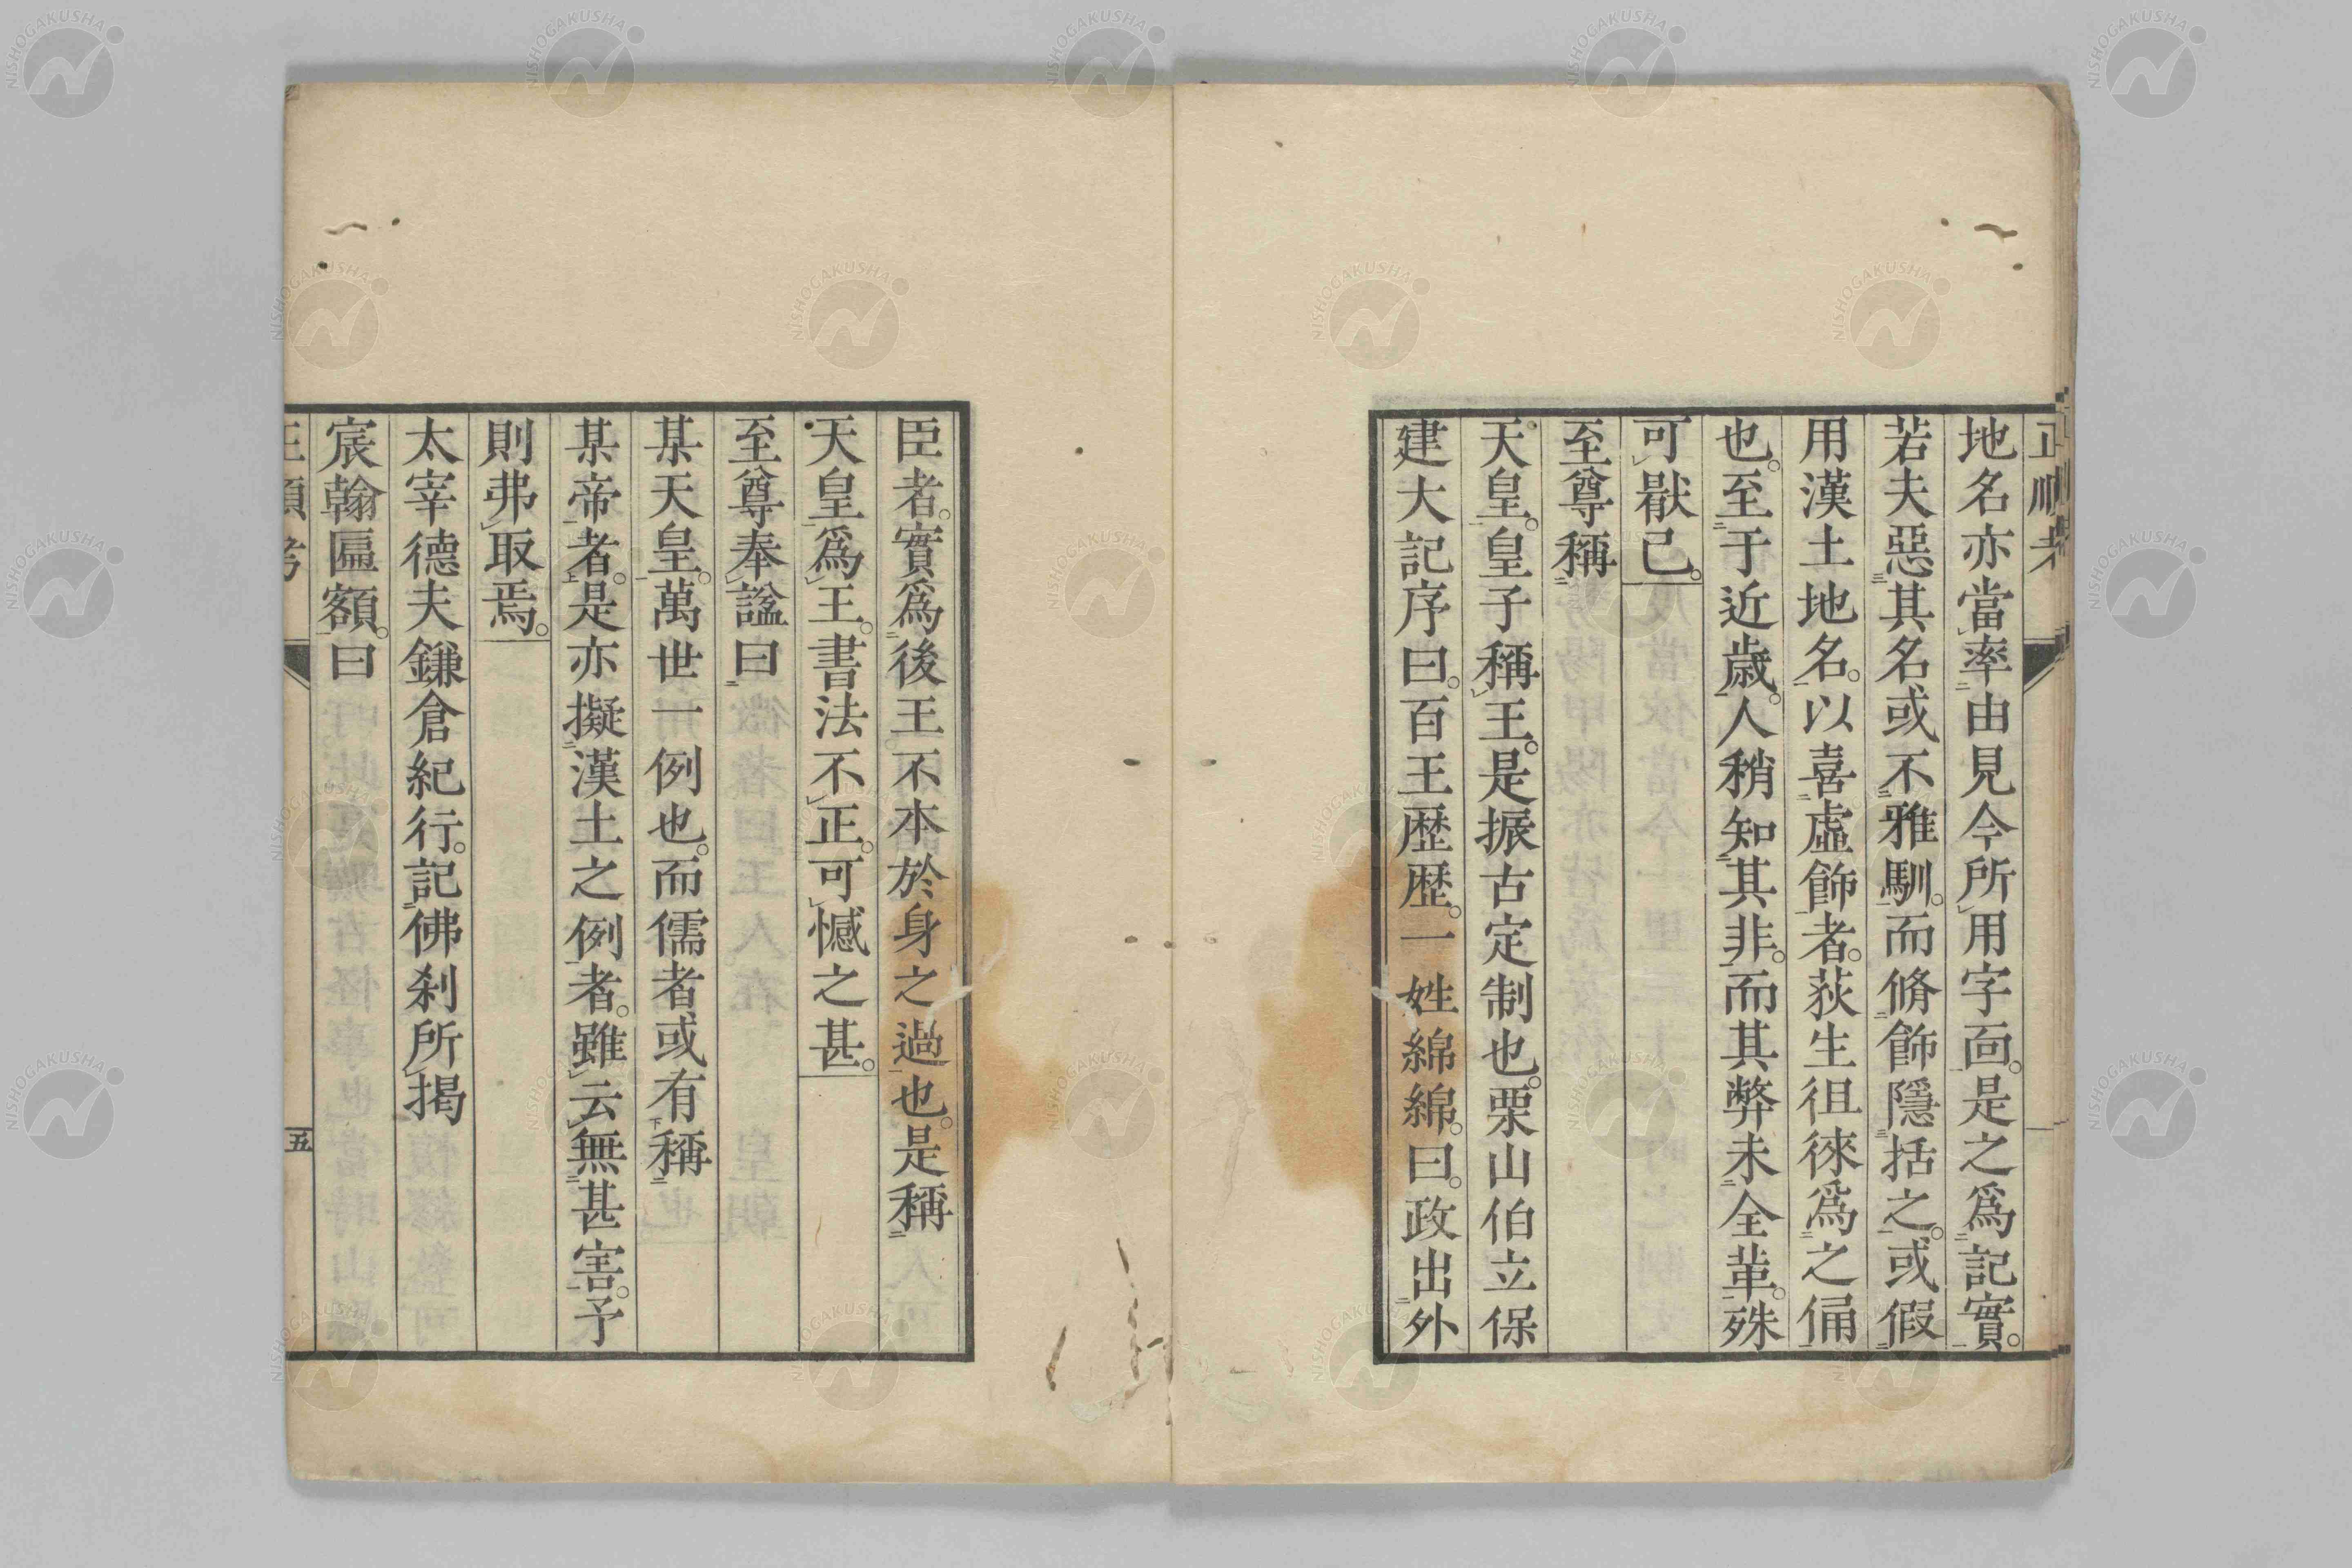 正順考
地名亦當率由見今所用字面。是之爲記實。
若夫惡其名或不雅馴。而脩飾隱括之。或假
用漢土地名。以喜虛飾者。荻生徂徠爲之俑
也。至于近歲。人稍知其非。而其弊未全革。殊
可厭已。
至尊稱
天皇。皇子稱王。是振古定制也。栗山伯立保
建大記序曰。百王歷歷。一姓綿綿。曰。政出外
臣者。實爲後王不本於身之過也。是稱
天皇爲王。書法不正。可憾之甚。
至尊奉諡曰
某天皇。萬世一例也。而儒者或有稱
某帝者。是亦擬漢土之例者。雖云無甚害。予
則弗取焉。
太宰德夫鎌倉紀行。記佛刹所揭
宸翰匾額。曰
正順考
五
NISHOGAKUSHA